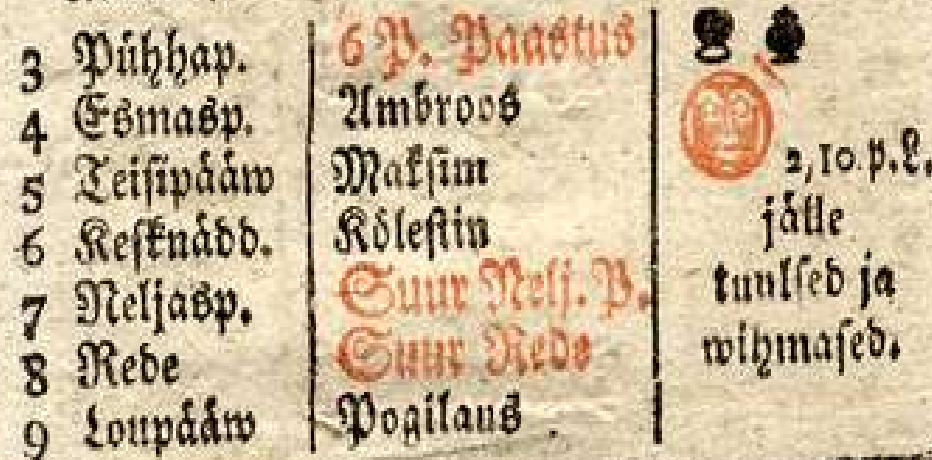 3 Pühhap. 6 P. Paastus
4 Esmasp. Ambroos
5 Teisipääw Maksim 2, 10. p. L.
6 Kesknädd. Kölestin jälle
7 Neljasp. Suur Nelj. P. tuulsed ja
8 Rede Suur Rede wihmased.
9 Loupääw Pogilaus